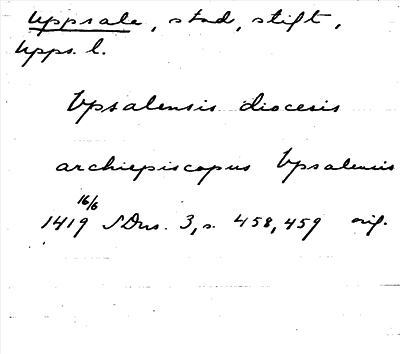 Uppsala, stad, stift,
Upps. l.
Vpsalensis diocesis
archiepiscopus Vpsalensis
16/6
1419 SDns. 3, s. 458, 459 orig.